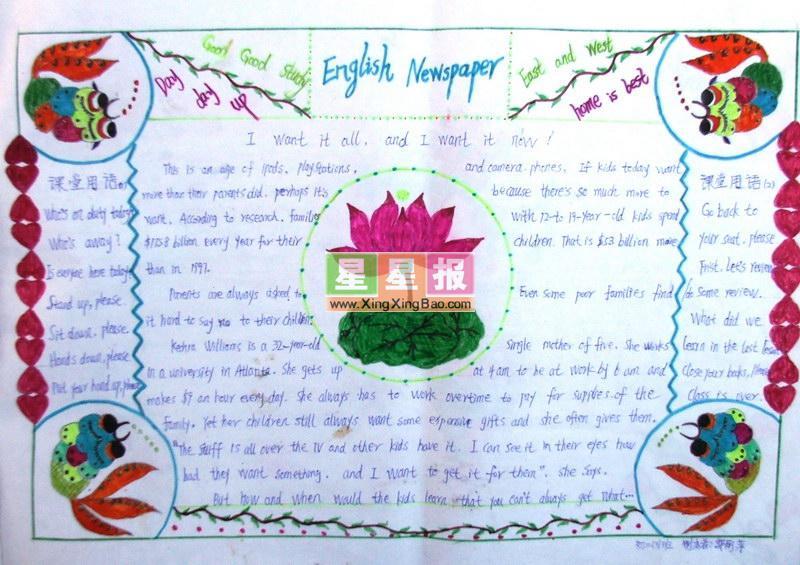 Good Good Study
Day day up
English Newspaper
East and West
home is best
I want it all, and I want it now!
This is an age of ipods, playstations, and camera phones. If kids today want
more than their parents did, perhaps it's because there's so much more to
want. According to research, families with 12-to 19-year-old kids spend
billion every year for their children. That is $53 billion more
than in 1997.
Parents are always asked to Even some poor families find
it hard to say no to their children.
Williams is a 32-year-old single mother of five. She works
in a university in Atlanta. She gets up at 4 am to be at work by 6 am and
makes $9 an hour every day. She always has to work overtime to pay for supplies of the
family. Yet her children still always want some expensive gifts and she often gives them.
"The stuff is all over the TV and other kids have it. I can see it in their eyes how
bad they want something. and I want to get it for them". she says.
But how and when would the kids learn that you can't always get what...
课堂用语(1)
Who's on duty today
Who's away?
Is everyone here today
Stand up, please.
Sit down, please.
Hands down, please
Put your hand up, please
课堂用语(2)
Go back to
your seat, please
Frist, Let's review
do some review.
What did we
learn in the last lesson
Close your books, please
Class is over.
星星报
www.XingXingBao.com